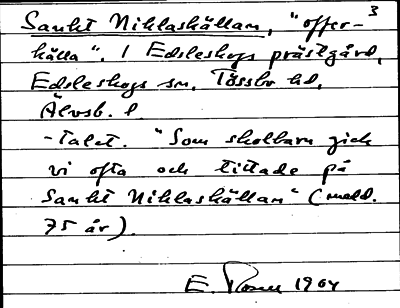 3
Sankt Niklaskällan, "offer-
källa". I Edsleskogs prästgård,
Edsleskogs sn, Tössbo hd,
Älvsb. l.
-talet. "Som skolbarn gick
vi ofta och tittade på
Sankt Niklaskällan" (medd.
75 år).
E. 1964